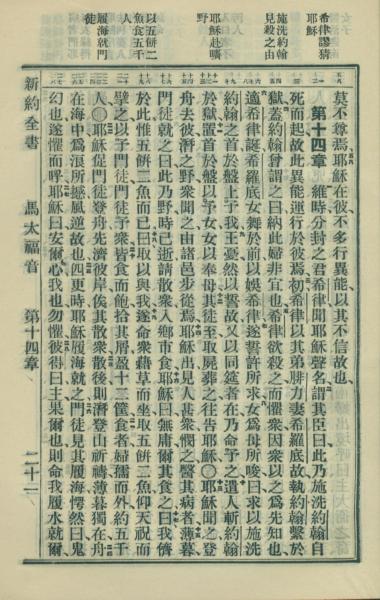 希律謬猜
耶穌
施洗約翰
見殺之由
耶穌赴曠
野
以五餅二
魚食五千
人
履海就門
徒
莫不尊焉耶穌在彼不多行異能以其不信故也
第十四章 維時分封之君希律聞耶穌聲名謂其臣曰此乃施洗約翰自
死而起故此異能運行於彼焉初希律以其弟腓力妻希羅底故執約翰繫於
獄蓋約翰曾謂之曰納此婦非宜也希律欲殺之而懼衆因衆以之為先知也
適希律誕希羅底女舞於前以娛希律遂誓許所求女為母所唆曰求以施洗
約翰之首於盤上予我王憂然以誓故又以同筵者在乃命予之遣人斬約翰
於獄置首於盤以予女女以奉母其徒至取屍葬之往告耶穌〇耶穌聞之登
舟去彼潛之野衆聞之由諸邑步從焉耶穌出見人衆憫之醫其病者薄暮
門徒就之曰此乃野時已逝請散衆入鄉市食耶穌曰無庸爾其食之曰我儕
於此惟五餅二魚而已曰取以與我遂命衆藉草而坐取五餅二魚仰天祝而
擘之以予門徒門徒予衆皆食而飽拾其屑盈十二筐食者婦孺而外約五千
人〇耶穌促門徒登舟先濟彼岸俟其散衆散後則潛登山祈禱薄暮獨在舟
在海中為浪所撼風逆故也四更時耶穌履海就之門徒見其履海愕然曰鬼
幻也遂懼而呼耶穌曰安爾心我也勿懼彼得曰主果爾也則命我履水就爾
新約全書
馬太福音
第十四章
二十一